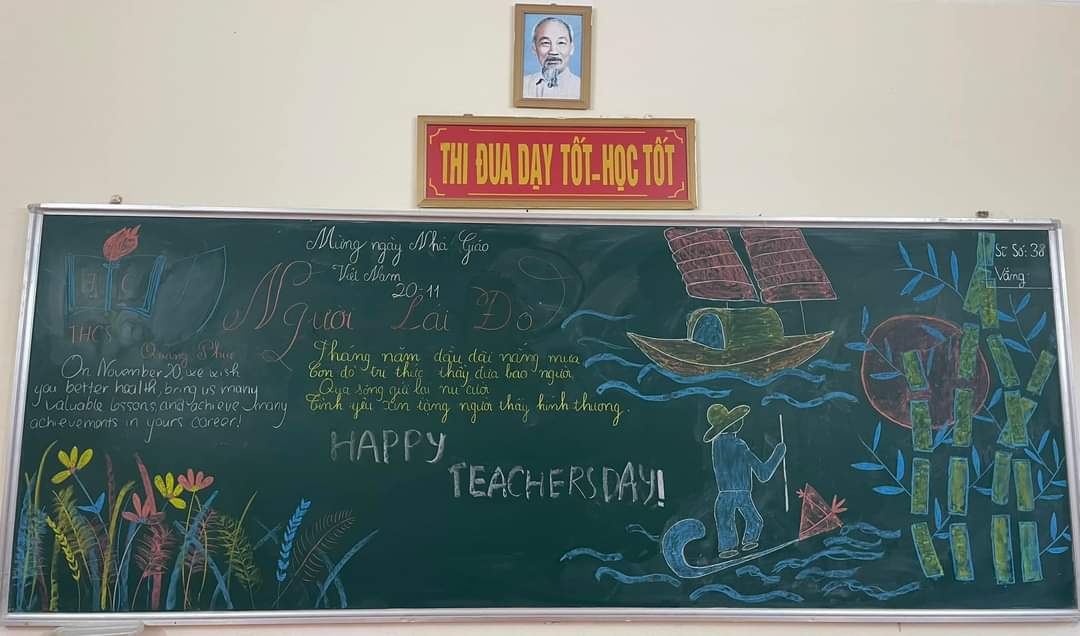 THI ĐUA DẠY TỐT-HỌC TỐT
Mừng ngày Nhà Giáo
Việt Nam
20-11
Sĩ Số: 38
Vắng:
Người Lái Đò
THCS
Quang Phục
On November 20, we wish
you better health, bring us many
valuable lessons, and achieve many
achievements in yours career!
Tháng năm dậu dãi nắng mưa
Con đò tri thức thầy đưa bao người
Qua sông gửi lại nụ cười
Tình yêu xin tặng người thầy kính thương.
HAPPY
TEACHERS DAY!